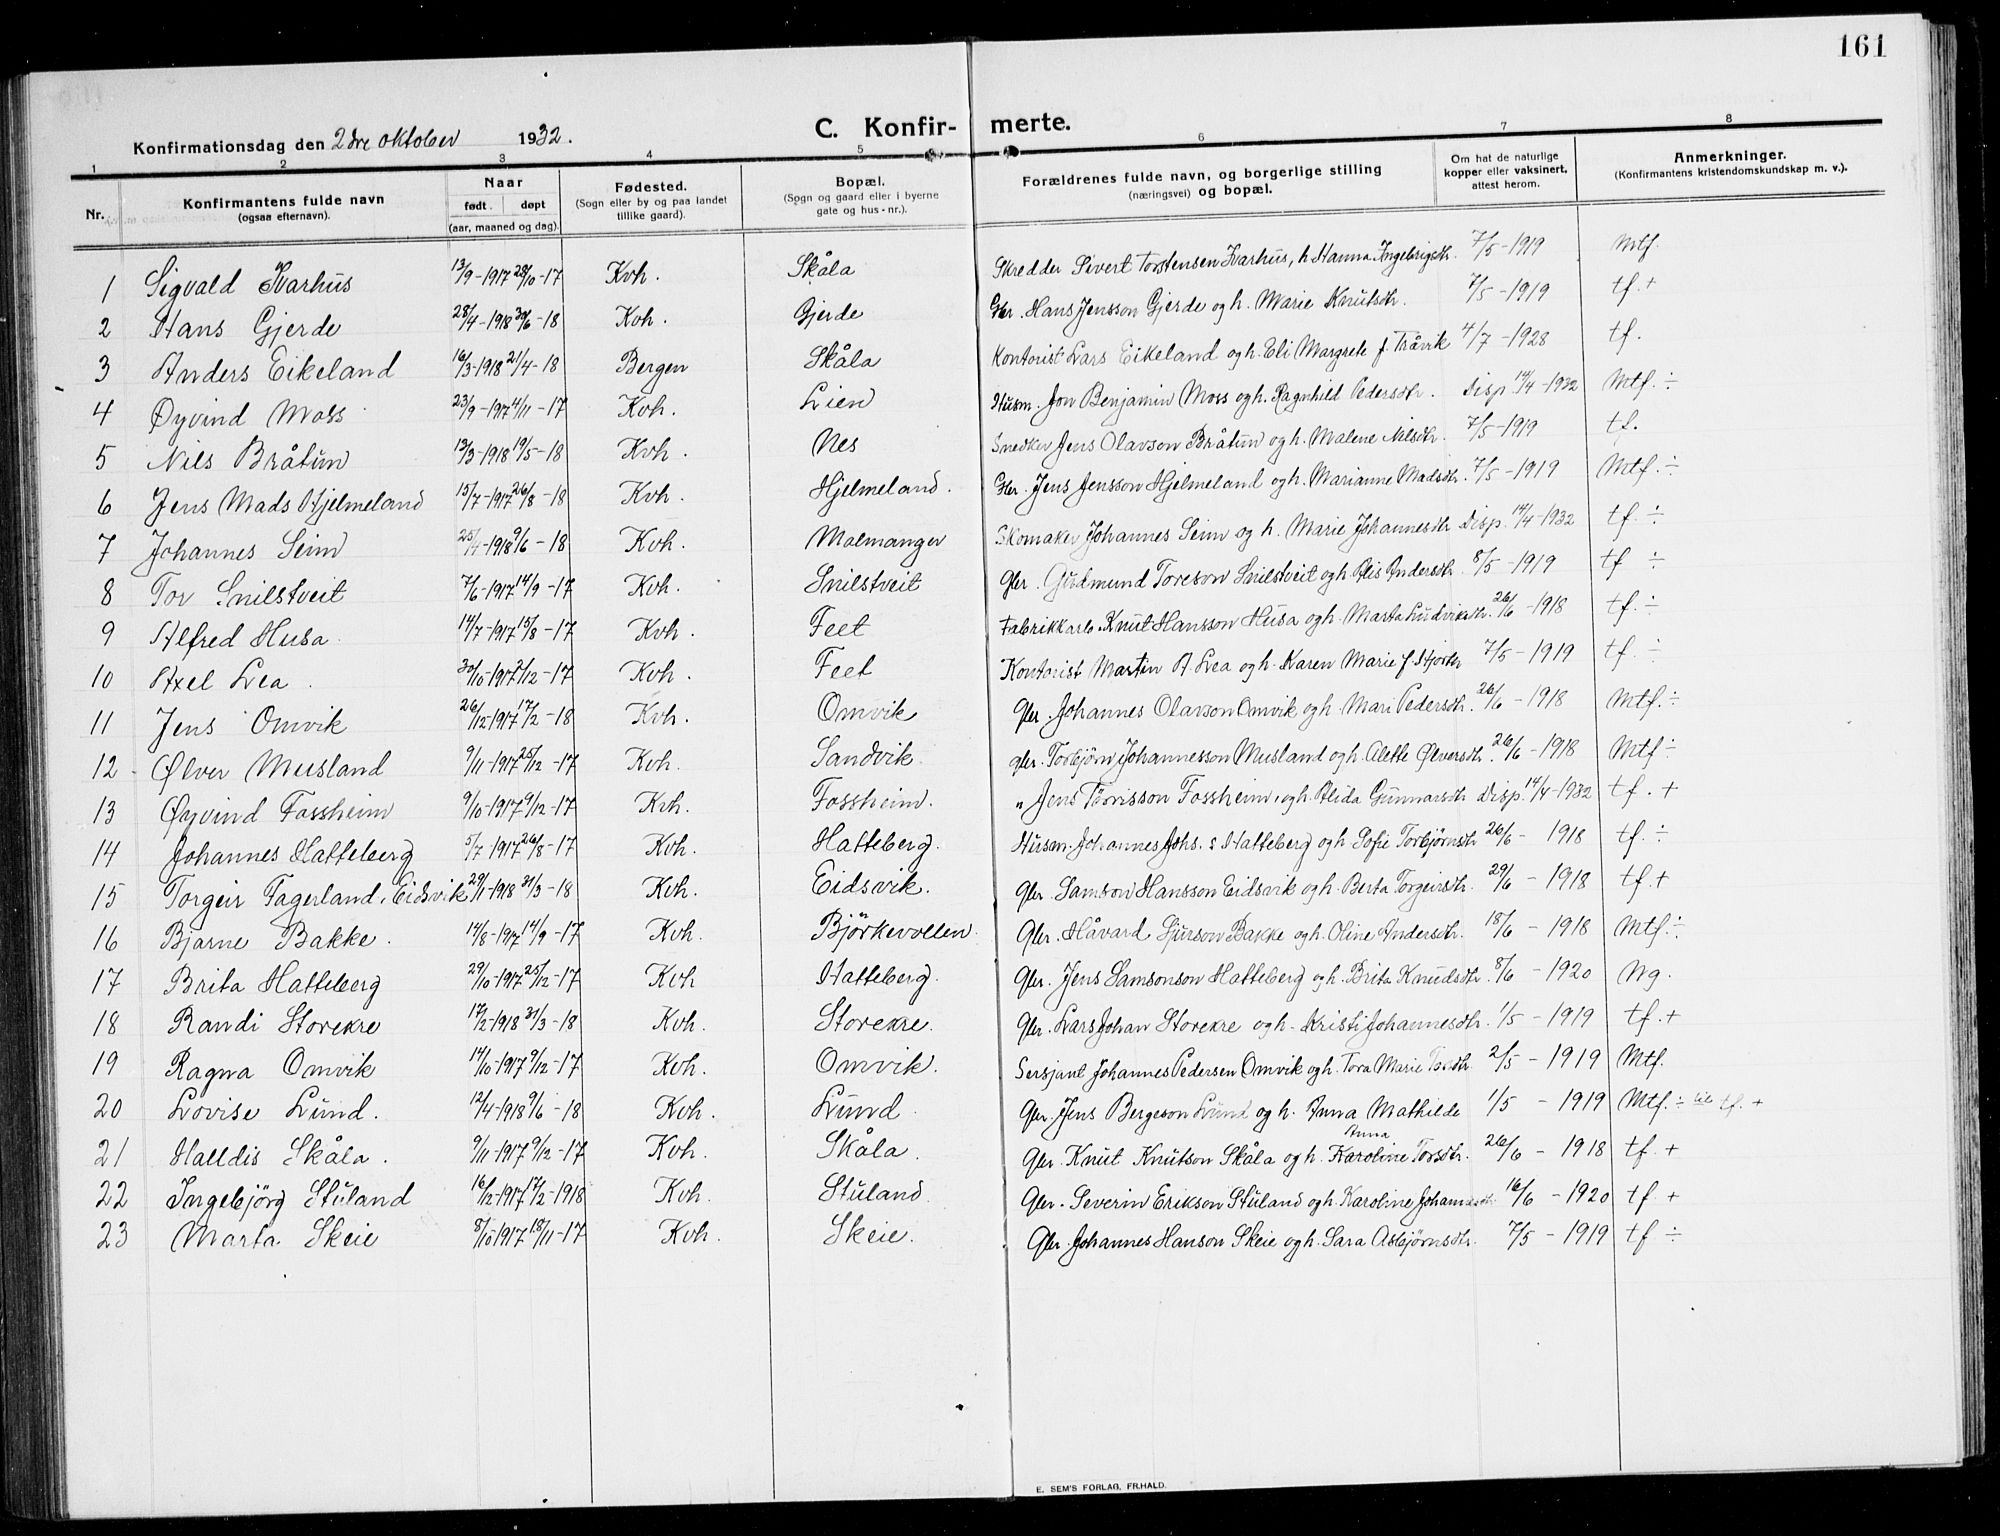 161
C. Konfir- merte.
Konfirmationsdag den 2dre oktober 1932.
1 2 3 4 5 6 7 8
Nr. Konfirmantens fulde navn (ogsaa efternavn). Naar født døpt (aar, maaned og dag). Fødested. (Sogn eller by og paa landet tillike gaard). Bopæl. (Sogn og gaard eller i byerne gate og hus-nr.). Forældrenes fulde navn, og borgerlige stilling (næringsvei) og bopæl. Om hat de naturlige kopper eller vaksinert, attest herom. Anmerkninger. (Konfirmantens kristendomskundskap m. v.).
1 Sigvald Kvarhus 13/9-1917 28/10-17 Kvh. Skåla Skredder Sivert Torstensen Kvarhus, h Hanna Ingebrigsdtr. 7/5-1919 Mtf.
2 Hans Gjerde 28/4-1918 30/6-18 Kvh. Gjerde Gbr. Hans Jensson Gjerde og h. Marie Knutsdtr. 7/5-1919 tf.+
3 Anders Eikeland 16/3-1918 21/4-18 Bergen Skåla Kontorist Lars Eikeland og h. Eli Margrete f. Tråvik 4/7-1928 tf.
4 Øyvind Moss 23/9-1917 4/11-17 Kvh. Lien Husm. Jon Benjamin Moss og h. Ragnhild Pedersdtr. Disp. 14/4-1932 Mtf. ÷
5 Nils Bråtun 13/3-1918 19/5-18 Kvh. Nes Snedker Jens Olavson Bråtun og h. Malene Nilsdtr. 7/5-1919 tf.
6 Jens Mads Hjelmeland 15/7-1917 26/8-18 Kvh. Hjelmeland. Gbr. Jens Jensson Hjelmeland og h. Marianne Madsdtr. 7/5-1919 Mtf. ÷
7 Johannes Seim 25/4-1918 9/6-18 Kvh. Malmanger Skomaker Johannes Seim og h. Marie Johannesdtr Disp. 14/4-1932 tf. ÷
8 Tor Snilstveit 7/6-1917 14/9-17 Kvh. Snilstveit Gbr. Gudmund Toreson Snilstveit og h. Alis Andersdtr. 8/5-1919 tf ÷
9 Alfred Husa. 14/7-1917 15/8-17 Kvh. Feet Fabrikkarb. Knut Hansson Husa og h. Marta Ludviksdtr. 26/6-1918 tf. ÷
10 Axel Lea. 30/10-1917 2/12-17 Kvh. Feet Kontorist Martin A Lea og h. Karen Marie f. 7/5-1919 tf. ÷
11 Jens Omvik 26/12-1917 17/2-18 Kvh. Omvik Gbr. Johannes Olavson Omvik og h. Mari Pedersdtr. 26/6-1918 Mtf. ÷
12 Ølver Musland 9/11-1917 25/12-17 Kvh. Sandvik. Gbr. Torbjörn Johannesson Musland og h. Alette Ølversdtr. 26/6-1918 Mtf ÷
13 Øyvind Fossheim 9/10-1917 9/12-17 Kvh. Fossheim. " Jens Tørrisson Fossheim, og h. Alida Gunnarsdtr Disp. 14/4-1932 tf. +
14 Johannes Hatteberg 5/7-1917 26/8-17 Kvh. Hatteberg. Husm. Johannes Johs. s Hatteberg og h. Sofie Torbjørnsdtr 26/6-1918 tf. ÷
15 Torgeir Fagerland, Eidsvik 29/1-1918 31/3-18 Kvh. Eidsvik. Gbr. Samson Hansson Eidsvik og h. Berta Torgeirsdtr. 29/6-1918 tf.+
16 Bjarne Bakke. 14/8-1917 14/9-17 Kvh. Björkevollen Gbr. Håvard Sjurson Bakke og h. Oline Andersdtr. 18/6-1918 Mtf. ÷
17 Brita Hatteberg 29/10-1917 25/12-17 Kvh Hatteberg. Gbr. Jens Samsonson Hatteberg og h. Brita Knudsdtr. 8/6-1920 Ng.
18 Randi Storekre 17/2-1918 31/3-18 Kvh. Storekre. Gbr. Lars Johan Storekre og h. Kristi Johannesdtr. 1/5-1919 tf.+
19 Ragna Omvik 14/10-1917 9/12-17 Kvh. Omvik. Sersjant Johannes Pedersen Omvik og h. Tora Marie 2/5-1919 Mtf.
20 Lovise Lund. 12/4-1918 9/6-18 Kvh. Lund. Gbr. Jens Bergeson Lund og h. Anna Mathilde 1/5-1919 Mtf. ÷ til tf. +
21 Halldis Skåla. 9/11-1917 9/12-17 Kvh. Skåla. Gbr. Knut Knutson Skåla og h. Anna Karoline Torsdtr. 26/6-1918 tf +
22 Ingebjörg Stuland 16/12-1917 17/2-1918 Kvh. Stuland. Gbr. Severin Erikson Stuland og h. Karoline Johannesdtr 16/6-1920 tf +
23 Marta Skeie 8/10-1917 18/11-17 Kvh. Skeie. Gbr. Johannes Hanson Skeie og h. Sara Asbjørnsdtr. 7/5-1919 tf ÷
E. SEM'S FORLAG, FR.HALD.